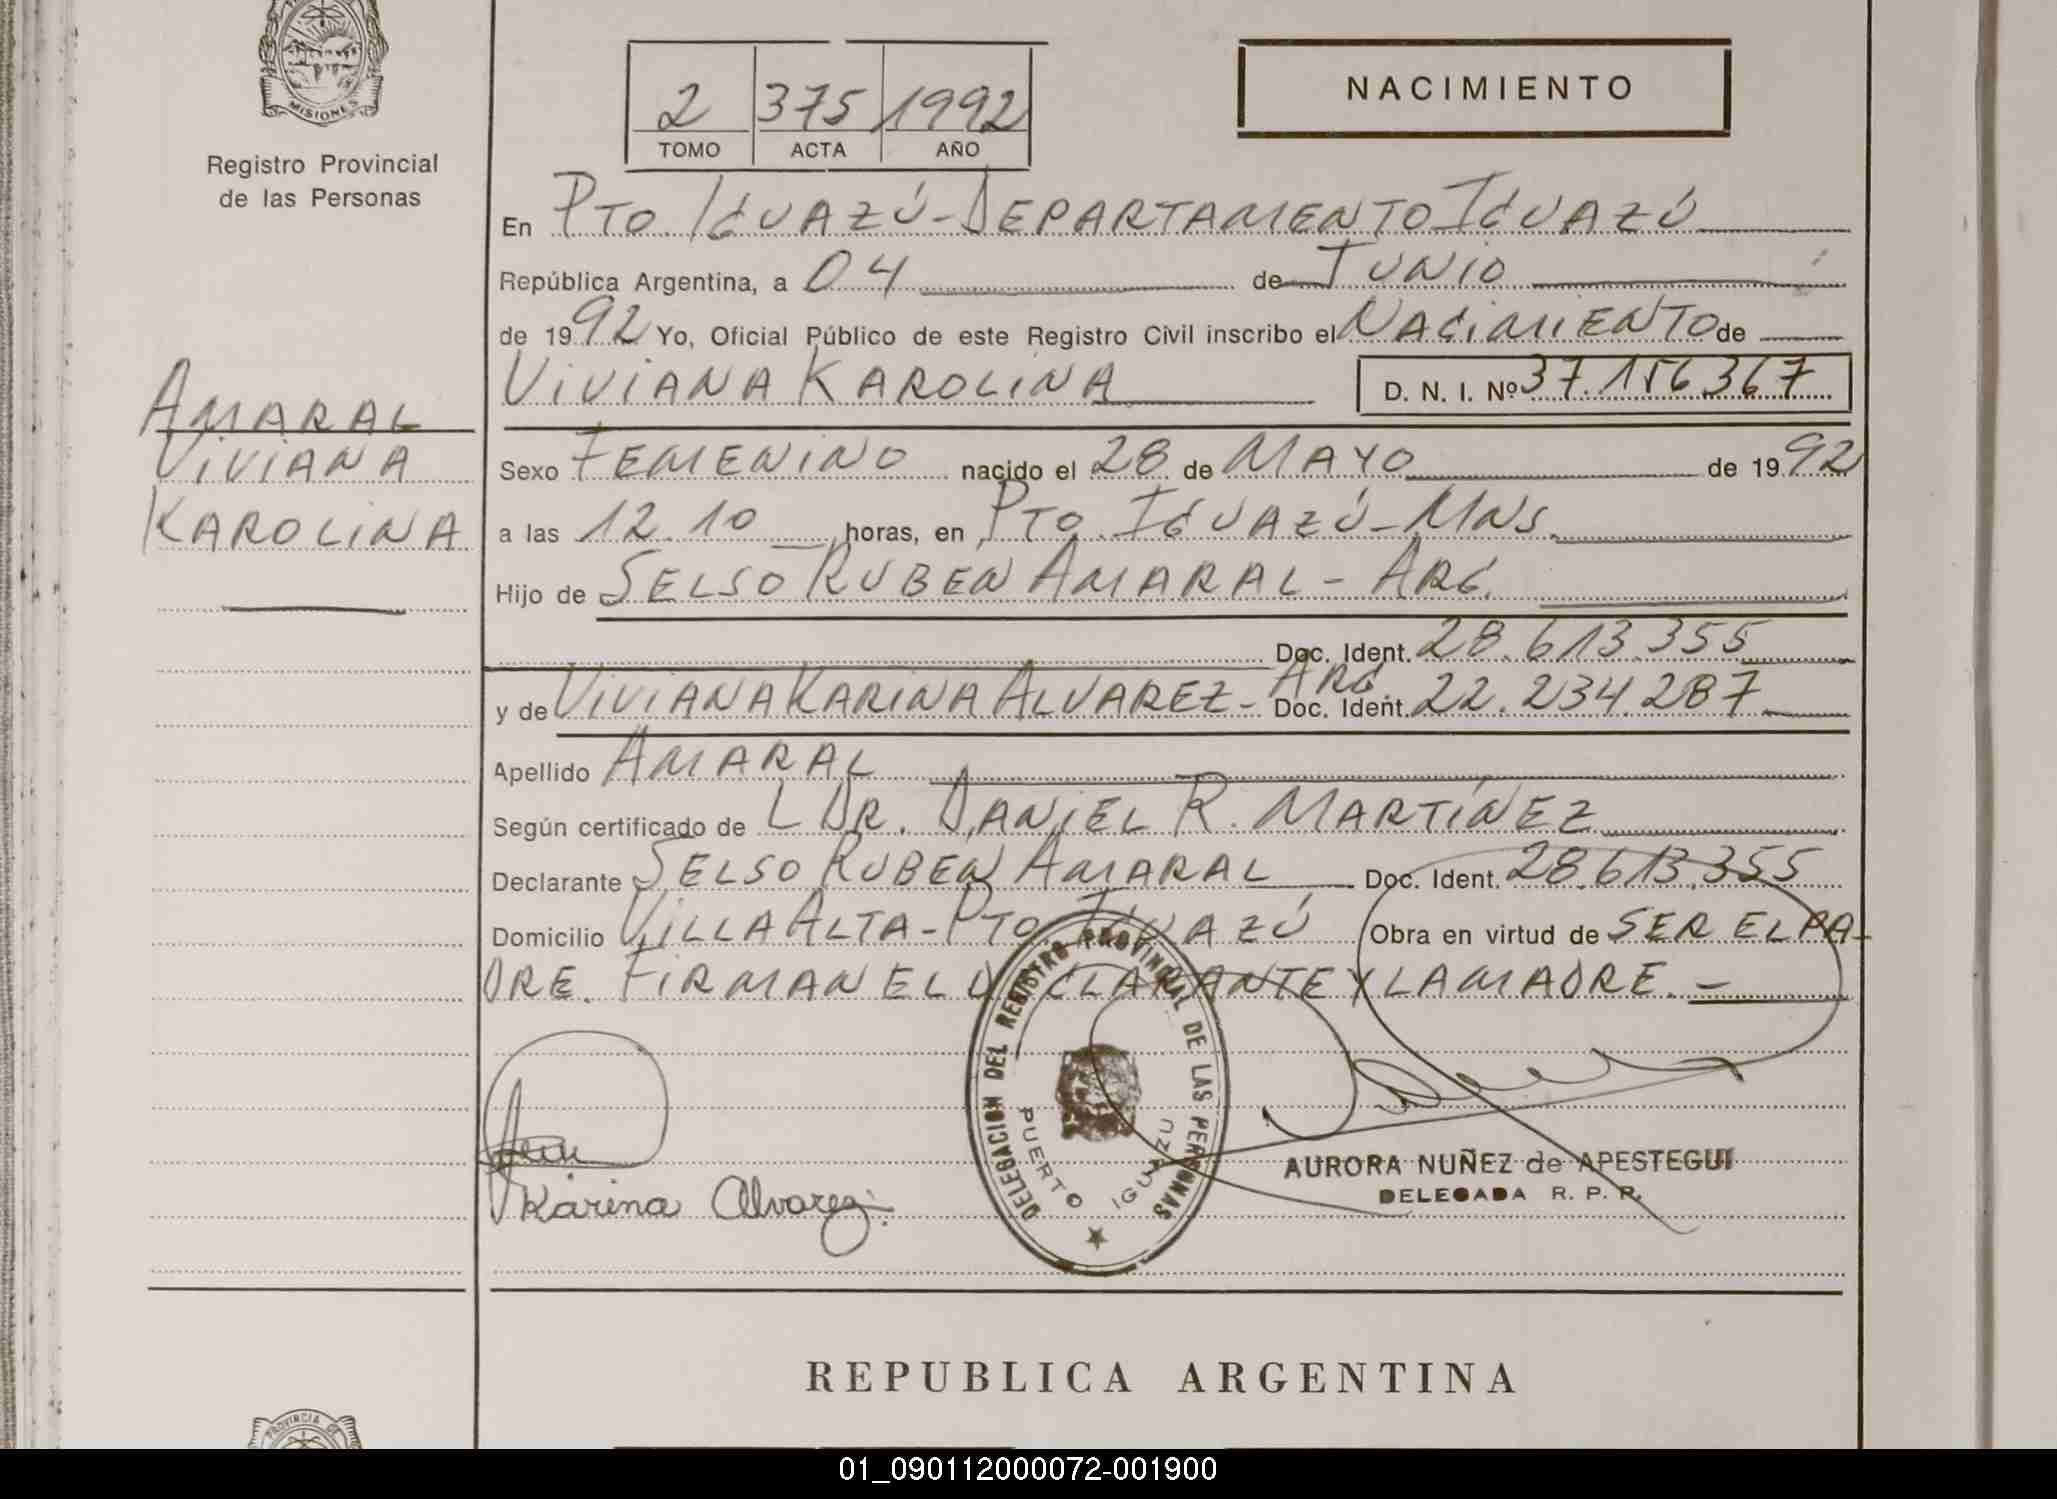 MISIONES
Registro Provincial
de las Personas
2 375 1992
TOMO ACTA AÑO
NACIMIENTO
En PTO. IGUAZÚ - DEPARTAMENTO IGUAZÚ
República Argentina, a 04 de JUNIO
de 1992 Yo, Oficial Público de este Registro Civil inscribo el NACIMIENTO de
VIVIANA KAROLINA D. N. I. Nº 37.156.367
AMARAL
VIVIANA
KAROLINA
Sexo FEMENINO nacido el 28 de MAYO de 1992
a las 12.10 horas, en PTO. IGUAZÚ - MNS.
Hijo de SELSO RUBEN AMARAL - ARG.
Doc. Ident. 28.613.355
y de VIVIANA KARINA ALVAREZ - ARG. Doc. Ident. 22.234.287
Apellido AMARAL
Según certificado de L DR. DANIEL R. MARTÍNEZ
Declarante SELSO RUBEN AMARAL Doc. Ident. 28.613.355
Domicilio VILLA ALTA - PTO IGUAZÚ Obra en virtud de SER EL PA-
DRE. FIRMAN EL DECLARANTE Y LA MADRE. -
DELEGACION DEL REGISTRO PROVINCIAL DE LAS PERSONAS
PUERTO IGUAZU
Karina Alvarez
AURORA NUÑEZ de APESTEGUI
DELEGADA R. P. P.
REPUBLICA ARGENTINA
PROVINCIA DE
01_090112000072-001900